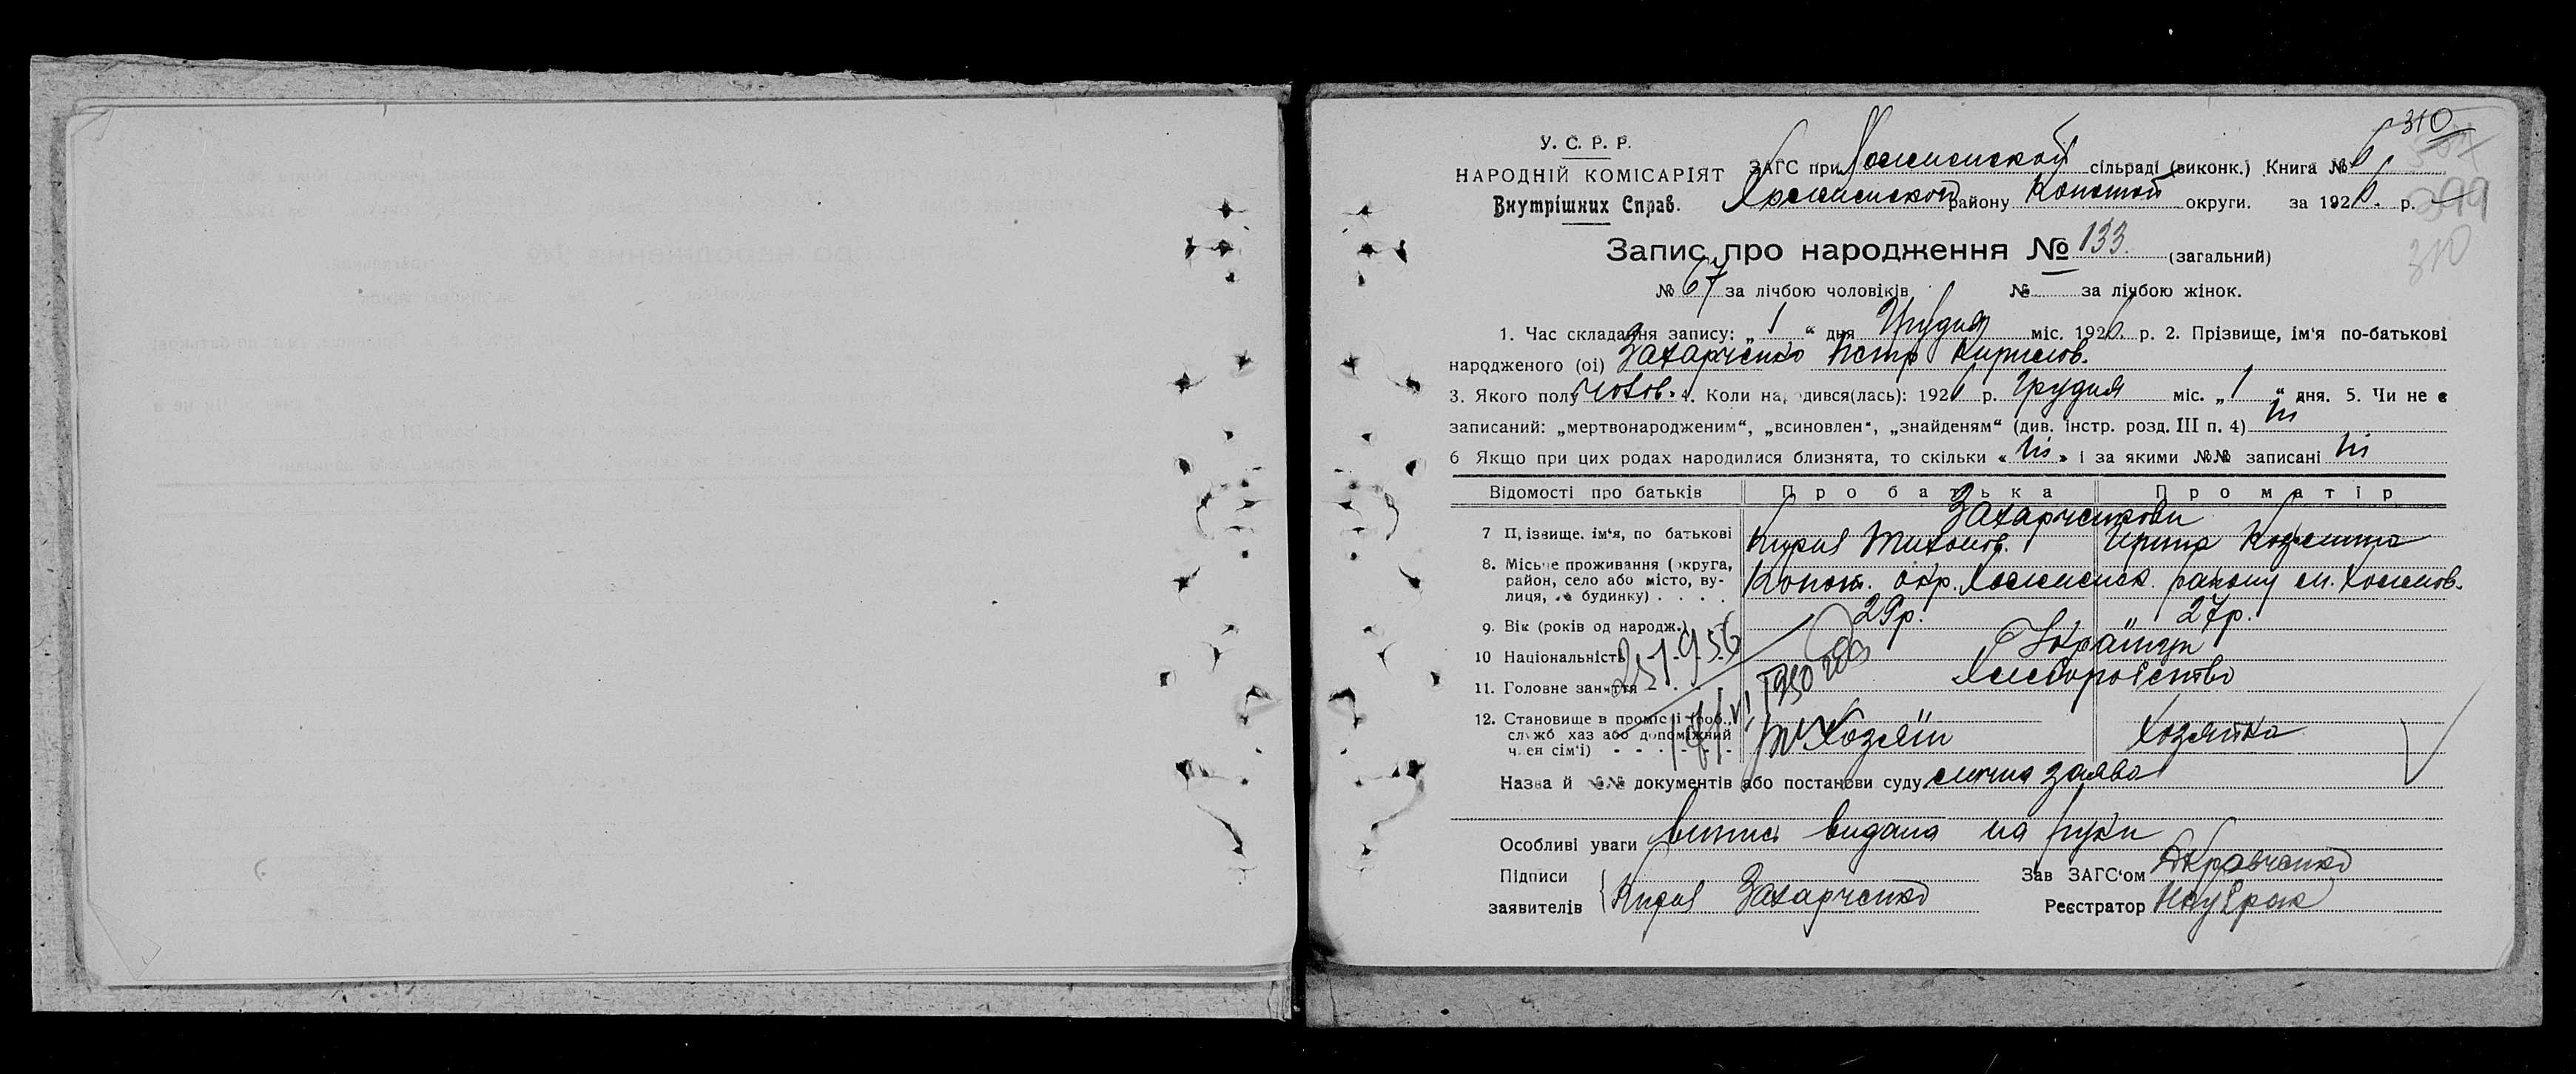 310
У. С. Р. Р.
НАРОДНІЙ КОМІСАРІЯТ
Внутрішних Справ.
ЗАГС при сільраді (виконк.) Книга №
району Конотоп округи. за 1926 р.
299
310
Запис про народження № 133. (загальний)
№ 67 за лічбою чоловіків № за лічбою жінок.
1. Час складання запису: „ 1 “ дня Грудня міс. 1926 р. 2. Прізвище, ім'я по-батькові
народженого (ої) Захарченко Петр Кирилов.
3. Якого полу чолов. 4. Коли народився(лась): 1926 р. Грудня міс. „ 1 “ дня. 5. Чи не є
записаний: „мертвонародженим“, „всиновлен“, „знайденям“ (див. інстр. розд. III п. 4) Ні
6 Якщо при цих родах народилися близнята, то скільки « Ні » і за якими №№ записані Ні
Відомості про батьків Про батька Про матір
Захарченкови
7 Прізвище. ім'я, по батькові Кирил Тихонов. Ирина
8. Місьце проживання (округа, район, село або місто, вулиця, № будинку) Конот. окр. району м.
9. Вік (років од народж.) 29р. 27р.
10 Національність Українці
11. Головне заняття Хлеборобство
12. Становище в промислі (роб., служб хаз або допоміжний член сім'ї) Хозяїн Хозяйка
Назва й №№ документів або постанови суду. заява
Особливі уваги випис видана на руки
Підписи
заявителів Кирил Захарченко
Зав ЗАГС'ом Кравченко
Реєстратор